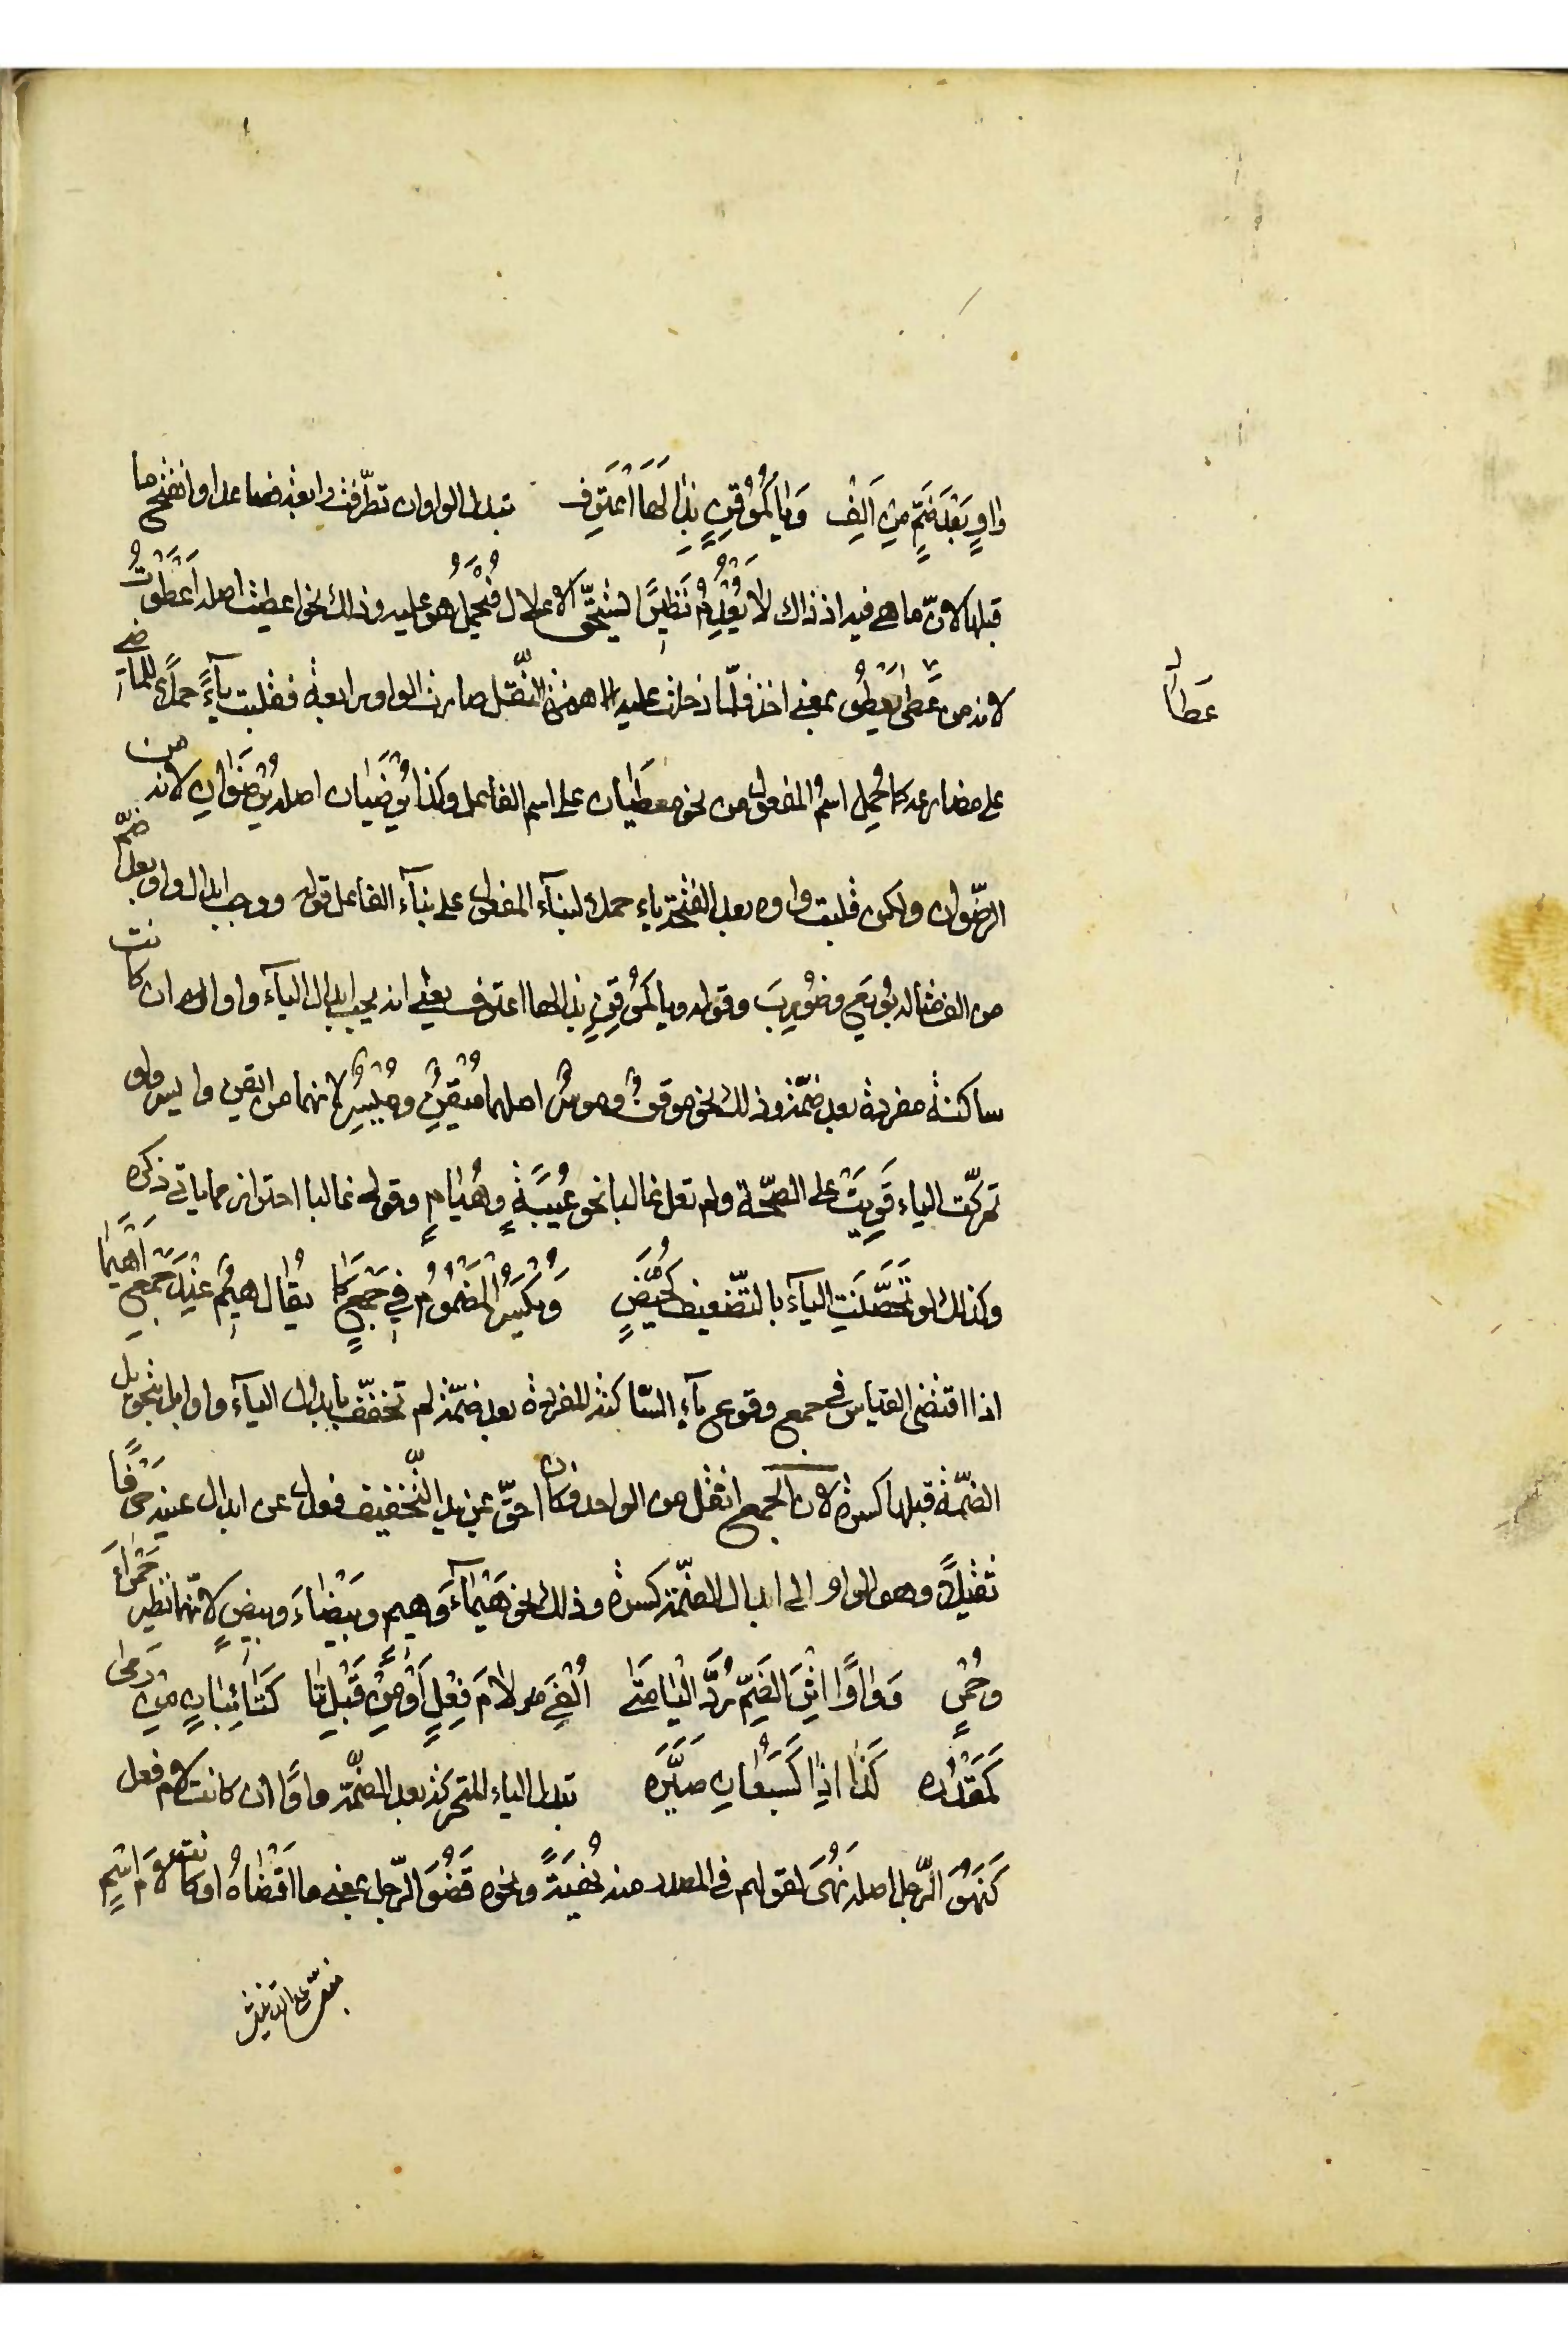 واوٍ بَعْدَ ضَمٍّ مِنْ اَلِفْ وَيَا كَمُوْقِنٍ بِذَا لَهَا اعْتَرِف تبدل الواو ان تطرّفت رابعة فصاعدا وانفتح ما
قبلها لانّ ما هي فيه اذ ذاك لا يَعْدِمُ نَظيرًا يستحقّ الاعلال فُيحْمَلُ هُوَ عليه وذلك نحو اعطيت اصله اَعْطَوْتُ
لانه من عَطٰى يَعْطُو بمعنى اخذ فلمّا دخلت عليه همزة النّقل صارت الواو رابعة فقلبت يآءً حملًا للماضى
على مضارعه كما حُمِل اسمُ المفعول من نحو معطَيَان على اسم الفاعل وكذا يُرْضَيَان اصله يُرْضَوَانِ لانه من
الرّضوان ولكن قلبت واوه بعد الفتحة ياء حملا لبنآء المفعول على بنآء الفاعل قوله ووجب ابدال واو بعد ضمّ
من الف مثاله بُويَعِ وضُوِرِبَ وقوله ويا كمُوقِنٍ بذا لها اعترف يعنى انه يجب ابدال اليآء واوا ان كانت
ساكنة مفردة بعد ضمّة وذلك نحو موقنٌ وموسرٌ اصلهما مُيْقِنٌ ومُيْسِرٌ لانهما من ايقن وايسر ولو
تحرّكت الياء قَوِيَتْ على الصحّة ولم تعل غالبا نحو عُيَبَةٍ وهُيَامٍ وقوله غالبا احتراز مما ياتى ذكره
وكذلك لو تَحَصَّنَتِ اليآء بالتّضعيف كحُيَّضٍ وَيُكْسَرُ المَضْمُوْمُ فِي جَمْعٍ كَمَا يُقَال هِيْمٌ عِنْدَ جَمْعِ اَهْيَمَا
اذا اقتضى القياس فى جمع وقوع يآء السّاكنة المفردة بعد ضمّة لم تخفّف بابدال اليآء واوا بل بتحويل
الضمّة قبلها كسرة لان الجمع اثقل من الواحد فكان احقّ بمزيد التّخفيف فعدل عن ابدال عينه حرفًا
ثقيلًا وهو الواو الى ابدال الضمّة كسرة وذلك نحو هَيْمَآءَ وهيم وبَيْضَاءَ وبيضٍ لانّهما نظير حَمْرَاءَ
وحُمْرٍ وَوَاوًا اثْرَ الضَمِّ رُدَّ اليَا مَتٰى اُلْفِيَ لامَ فِعْلٍ اَوْ مِنْ قَبْلِ تَا كَتَاءِ بَانٍ مِنْ رَمٰى
كَمَقْدُرَه كَذَا اِذَا كَسَبُعَانِ صَيَّرَه تبدل الياء المتحركة بعد الضمّة واوًا ان كانت لام فعل
كَنَهُوَ الرّجل اصله نَهُىَ لقولهم فى المصدر منه نُهْيَةً ونحوه قَضُوَ الرّجل بمعنى ما اقْضَاهُ او كانت لامَ اسْمٍ
عَطَا